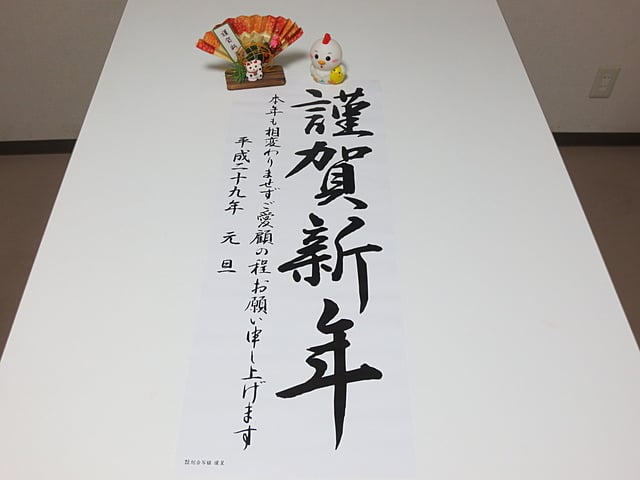 謹賀新年
本年も相変わりませずご愛顧の程お願い申し上げます
平成二十九年 元旦